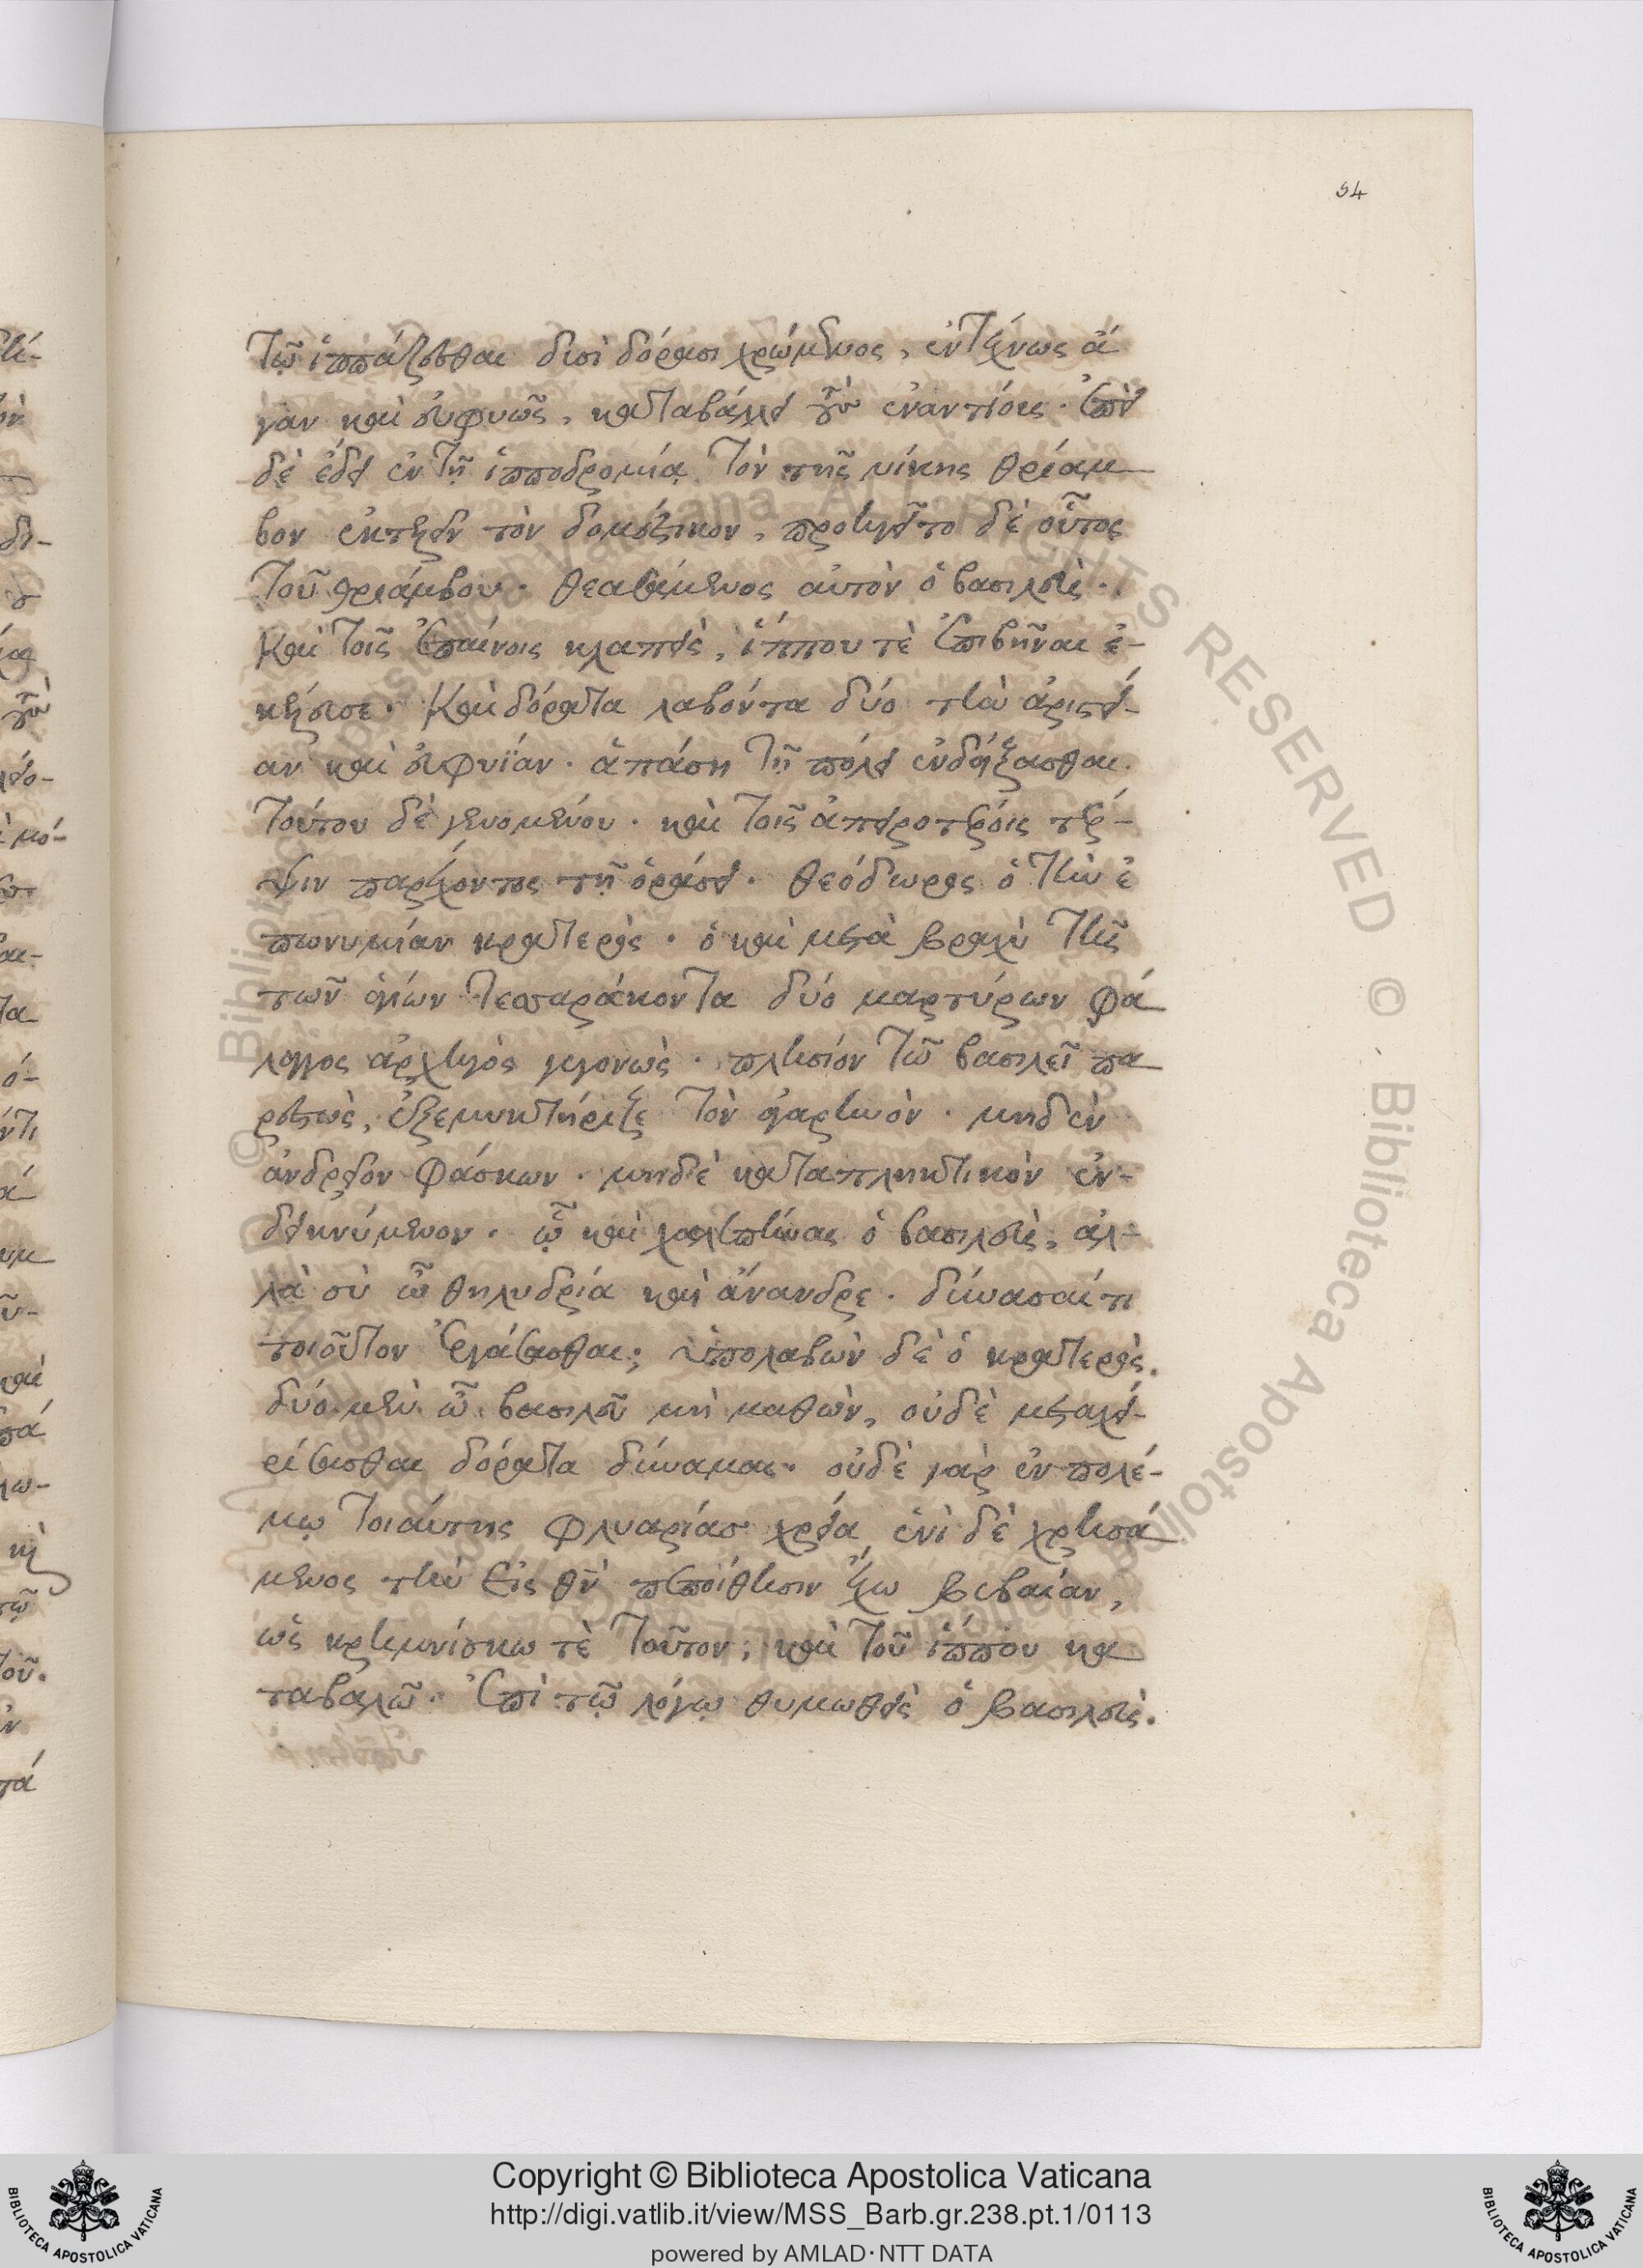 54
τῷ ἱππάζεσθαι δυσὶ δόρασι χρώμενος, ἐντέχνως ἄ
γαν καὶ εὐφυῶς, καταβάλλει τοὺς ἐναντίους. Ἐπεὶ
δὲ ἔδει ἐν τῇ ἱπποδρομίᾳ τὸν τῆς νίκης θρίαμ
βον ἐκτελεῖν τὸν δομέστικον, προηγεῖτο δὲ οὗτος
τοῦ θριάμβου. θεασάμενος αὐτὸν ὁ βασιλεὺς.
καὶ τοῖς ἐπαίνοις κλαπεὶς, ἵππου τὲ ἐπιβῆναι ἐ-
κέλευσε. καὶ δόρατα λαβόντα δύο τὴν ἀριστεί-
αν καὶ εὐφυΐαν. ἁπάσῃ τῇ πόλει ἐνδείξασθαι.
τούτου δὲ γενομένου. καὶ τοῖς ἀπειροτέροις τέρ-
ψιν παρέχοντος τῇ ὁράσει. θεόδωρος ὁ τὴν ἐ
πωνυμίαν κρατερὸς. ὁ καὶ μετὰ βραχὺ τῆς
τῶν ἁγίων τεσσαράκοντα δύο μαρτύρων φά
λαγγος ἀρχηγὸς γεγονὼς. πλησίον τῷ βασιλεῖ πα
ρεστὼς, ἐξεμυκτήριζε τὸν ἀγαρηνὸν. μηδὲν
ἀνδρεῖον φάσκων. μηδὲ καταπληκτικὸν ἐν-
δεικνύμενον. ᾧ καὶ χαλεπήνας ὁ βασιλεὺς, ἀλ-
λὰ σὺ ὦ θηλυδρία καὶ ἄνανδρε. δύνασαί τι
τοιοῦτον ἐργάσασθαι; ὑπολαβὼν δὲ ὁ κρατερὸς.
δύο μὲν ὦ βασιλεῦ μὴ μαθὼν, οὐδὲ μεταχει-
ρίσασθαι δόρατα δύναμαι. οὐδὲ γὰρ ἐν πολέ-
μῳ τοιαύτης φλυαρίασ χρεία, ἑνὶ δὲ χρησά
μενος τὴν εἰς θν̄ πεποίθησιν ἔχω βεβαίαν,
ὡς κρημνίσκω τὲ τοῦτον, καὶ τοῦ ἵππου κα
ταβαλῶ. Ἐπὶ τῷ λόγῳ θυμωθεὶς ὁ βασιλεὺς.
© Biblioteca Apostolica Vaticana ALL RIGHTS RESERVED
Copyright © Biblioteca Apostolica Vaticana
http://digi.vatlib.it/view/MSS_Barb.gr.238.pt.1/0113
powered by AMLAD·NTT DATA
BIBLIOTECA APOSTOLICA VATICANA
BIBLIOTECA APOSTOLICA VATICANA